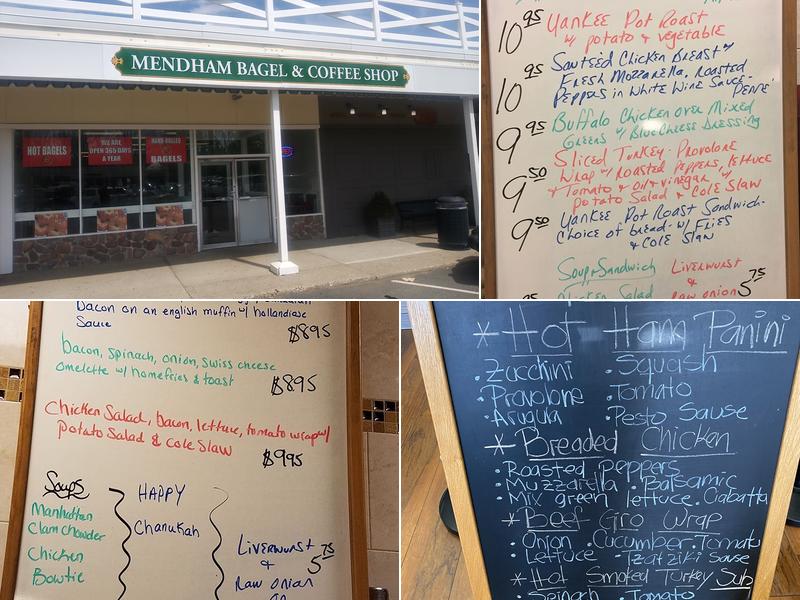 MENDHAM BAGEL & COFFEE SHOP
HOT BAGELS
WE ARE
OPEN 365 DAYS
A YEAR
HAND-ROLLED
BAGELS
10 95 Yankee Pot Roast
w/ potato & vegetable
10 95 Sauteéd Chicken Breast w/
Fresh Mozzarella, Roasted
Peppers in White Wine Sauce-
Penne
9 95 Buffalo Chicken over Mixed
Greens w/ Blue Cheese Dressing
9 50 Sliced Turkey- Provolone
Wrap w/ Roasted Peppers, lettuce
+ Tomato & oil & vinegar w/
Potato Salad & Cole Slaw
9 50 Yankee Pot Roast Sandwich-
choice of bread- w/ Fries
& Cole Slaw
Soup & Sandwich
Chicken Salad
Liverwurst
&
Raw onion 5 75
Bacon on an english muffin w/ hollandiase
Sauce
$8 95
bacon, spinach, onion, swiss cheese
omelette w/ homefries & toast
$8 95
Chicken Salad, bacon, lettuce, tomato wrap w/
potato Salad & cole slaw
$9 95
Soups
Manhattan
Clam Chowder
Chicken
Bowtie
HAPPY
Chanukah
Liverwurst
&
Raw onion
5 75
* Hot Ham Panini
• Zucchini • Squash
• Provolone • Tomato
• Arugula • Pesto Sause
* Breaded Chicken
• Roasted peppers
• Muzzarella • Balsamic
• Mix green lettuce • Ciabatta
* Beef Gro Wrap
• Onion • Cucumber • Tomato
• Lettuce • Tzatziki Sause
* Hot Smoked Turkey Sub
• Spinach • Tomato